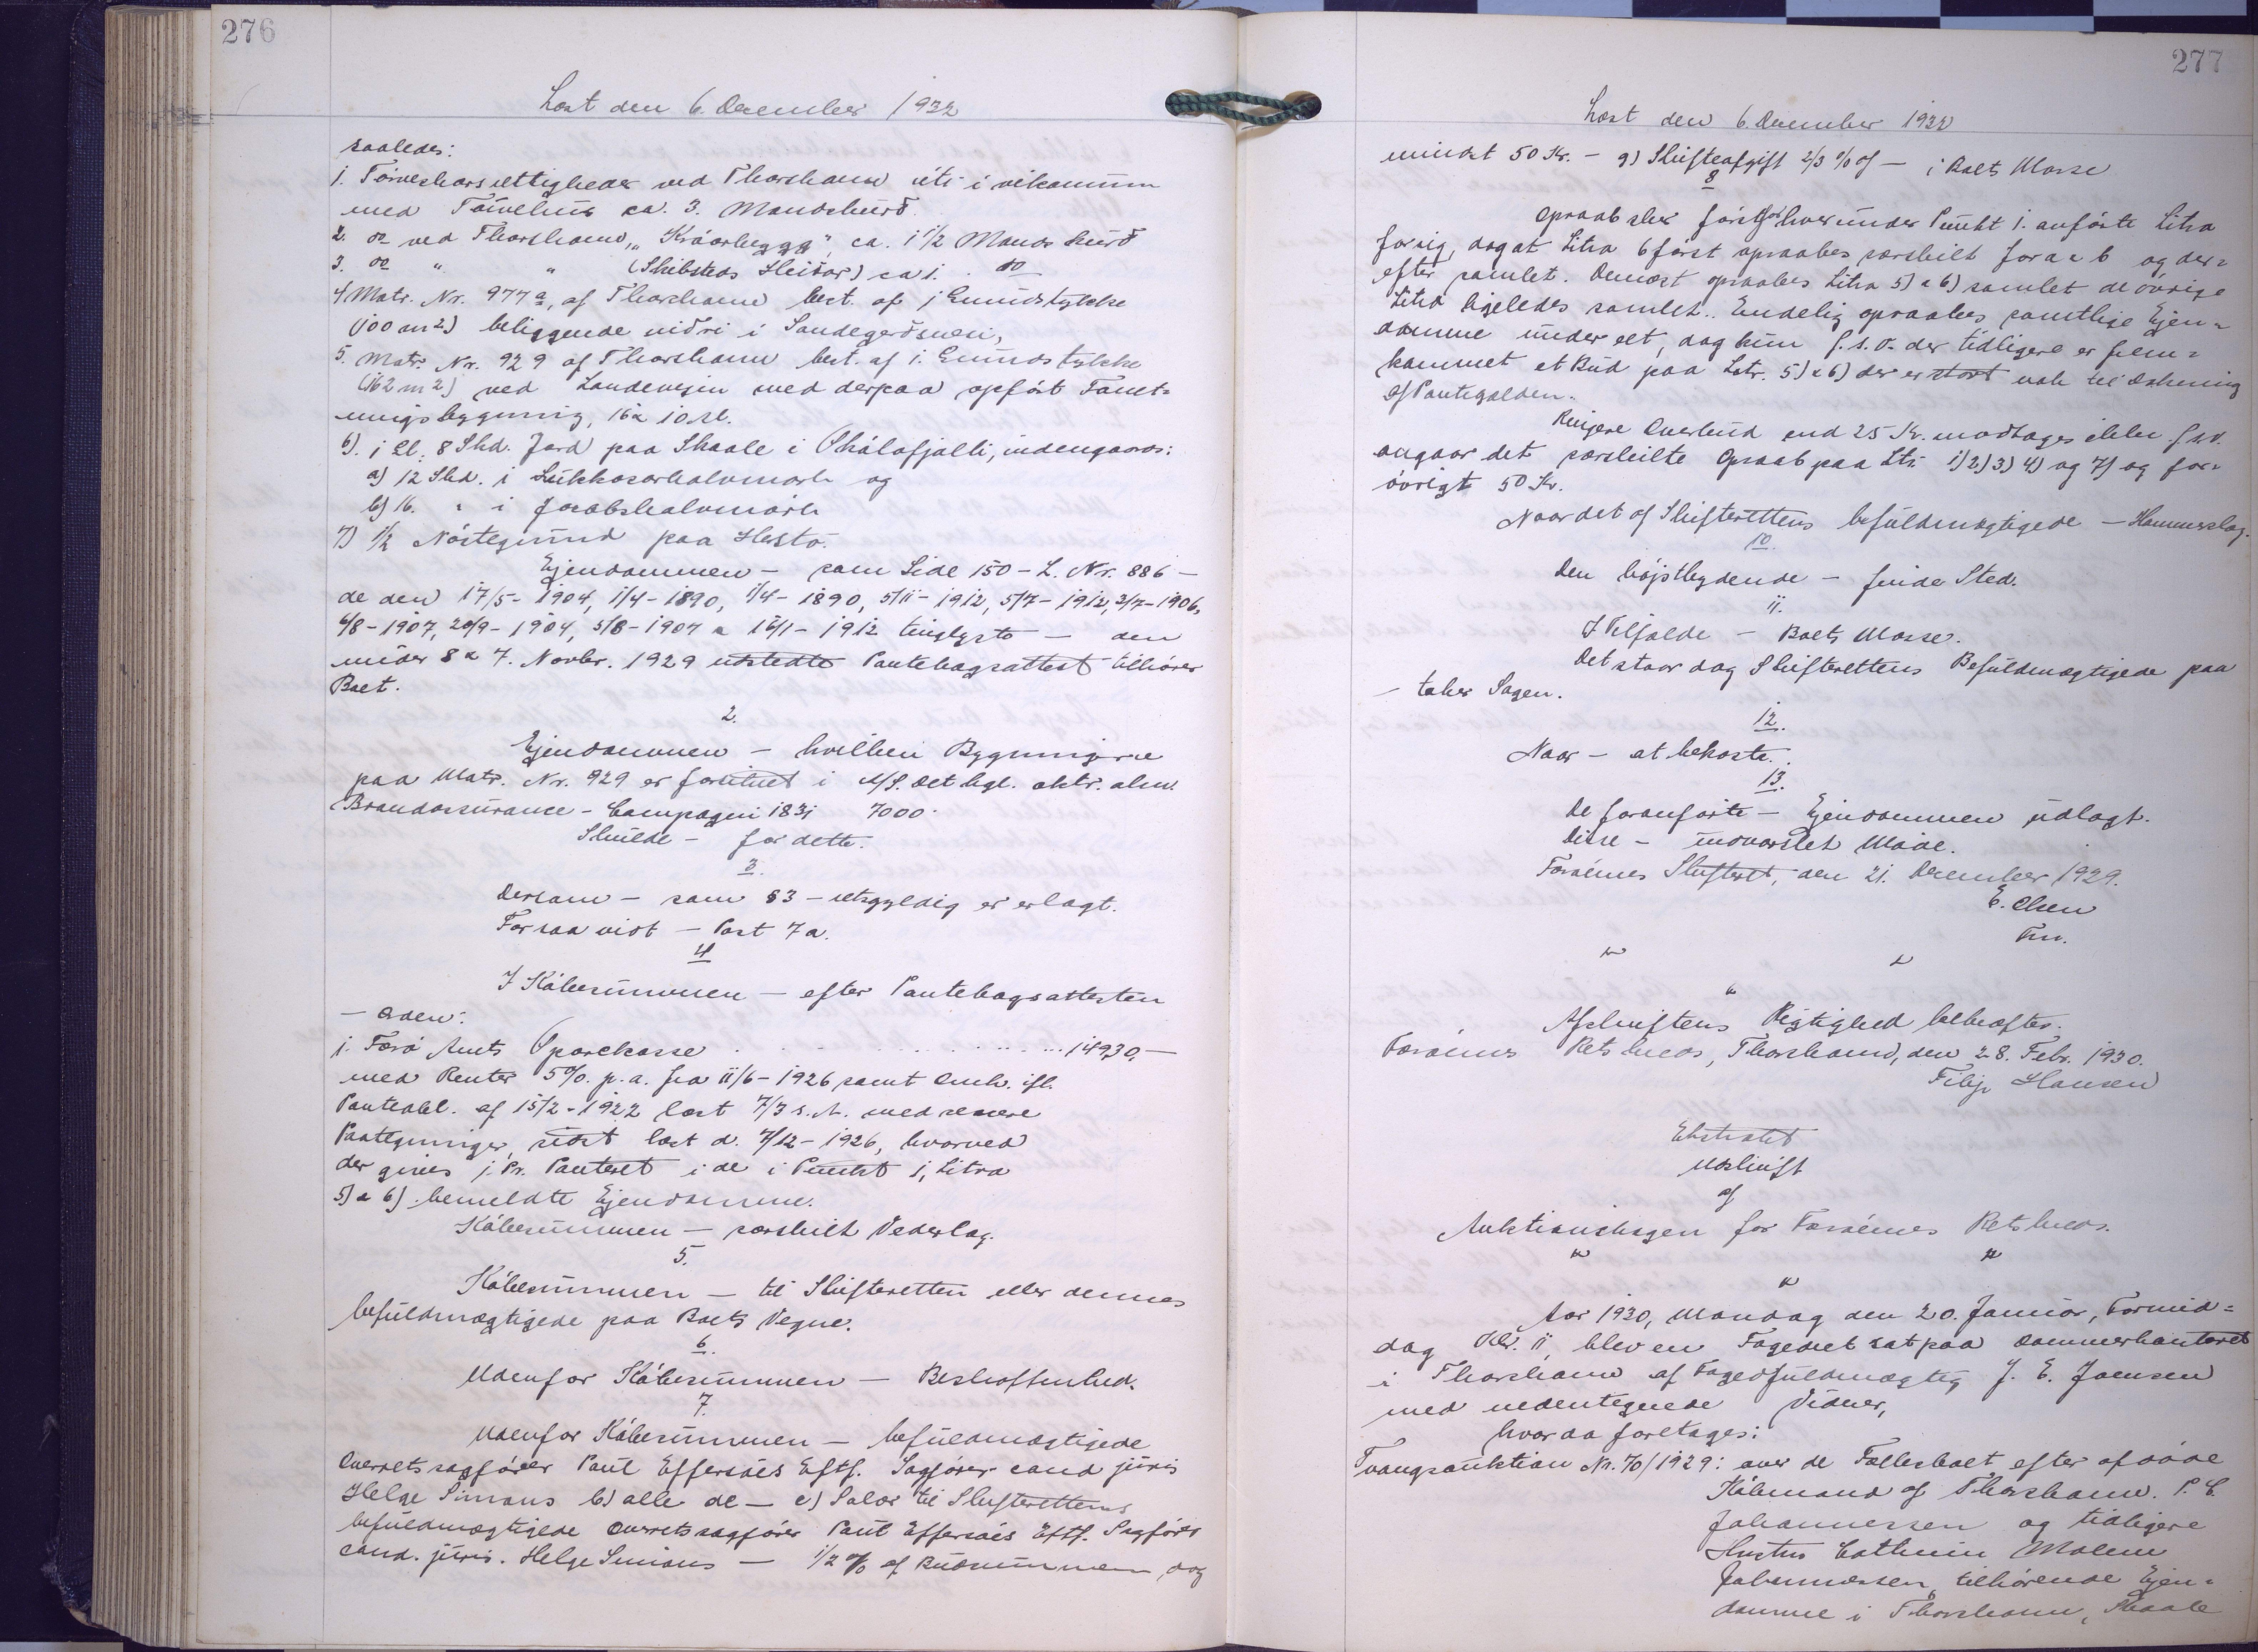 276
Læst den 6. December 1932
saaledes:
1. Tørveskærsrettigheder ved Thorshavn úti i vikunum
med Tørvehus ca. 3. Mandskurð.
2. do ved Thorshavn, "Kráarheygg", ca. 1 1/2 Mands kurð
3. do " " (Skibsteds Heiðar) ca 1. do
4 Matr. Nr. 977a, af Thorshavn best. af 1 Grundstykke
(100 m2) beliggende niðri i Sandegerðsveri,
5. Matr. Nr. 929 af Thorshavn best. af 1. Grundstykke
(162 m2) ved Landevejen med derpaa opført Tomt-
ningsbygning, 16 x 10 Al.
6). 1 Gl. 8 Skd. Jord paa Skaale i Skálafjalli, indengaards:
a) 12 Skd. i Lukkasarhalvmørk og
b) 16. " i Jocobshalvmørk
7) 1/2 Nóstegrund paa Hestø.
Ejendommen - som Side 150 - L. Nr. 886 -
de den 17/5 - 1904, 1/4 - 1890, 1/4 - 1890, 5/11 - 1912, 5/7 - 1912, 3/7 - 1906,
6/8 - 1907, 20/9 - 1904, 5/8 - 1907 & 16/1 - 1912 tinglyste - den
under 8 & 7. Novbr. 1929 udstedte Pantebogsattest tilhører
Boet.
2.
Ejendommen - hvilken Bygningerne
paa Matr. Nr. 929 er forsikret i A/S. Det kgl. oktr. alm.
Brandassurance - Compagni 1831 7000.
Skulde - for dette.
3.
Dersom - som § 3 - retsgyldig er erlagt.
Forsaavidt - Post 7a.
4
I Købesummen - efter Pantebogsattesten
- Orden:
1. Færø Amts Sparekasse . . . . . . . . . 14930,-
med Renter 5%. p.a. fra 11/6 - 1926 samt Omk. ifl.
Panteobl. af 15/2 - 1922 læst 7/3 s. A. med senere
Paategninger, sidst læst d. 7/12 - 1926, hvorved
der gives 1. Pr. Panteret i de i Punkt 1, Litra
5) & 6) bemeldte Ejendomme.
Købesummen - særskilt Vederlag.
5.
Købesummen - til Skifteretten eller dennes
befuldmægtigede paa Boets Vegne.
6.
Udenfor Købesummen - Beskaffenhed.
7.
Udenfor Købesummen - befuldmægtigede
Overretssagfører Poul Effersøes Eftf. Sagfører cand juris
Helge Simons b) alle de - c) Salær til Skifterettens
befuldmægtigede Overretssagfører Poul Effersøes Eftf. Sagfører
cand. juris. Helge Simons - 1/2 % af Budsummen, dog
277
Læst den 6. December 1932
mindst 50 Kr. - 9) Skifteafgift 2/3 % af - i Boets Masse
8
Opraab sker først for hver under Punkt 1. anførte Litra
for sig, dog at Litra 6 først opraabes særskilt for a & b og der-
efter samlet. Demæst opraabes Litra 5) & 6) samlet de øvrige
Litra ligeledes samlet.. Endelig opraabes samtlige Ejen-
domme under eet, dog kun f. s. v. der tidligere er frem-
kommet et Bud paa Ltr. 5) & 6) der er stort nok til Dækning
af Pantegælden.
Ringere Overbud end 25 Kr. modtages ikke f.s.v.
angaar det særskilte Opraab paa Ltr. 1) 2) 3) 4) og 7) og for-
øvrigt 50 Kr.
Naar det af Skifterettens befuldmægtigede - Hammerslag.
10.
Den højstbydende - finde Sted.
11.
I Tilfælde - Boets Masse.
Det staar dog Skifterettens Befuldmægtigede paa
- taber Sagen.
12.
Naar - at bekoste.
13.
De foranførte - Ejendommen udlagt.
Disse - indvarslet Møde.
Færøernes Skifteret, den 21. December 1929.
E. Olsen
Fm.
"
" "
Afskriftens Rigtighed bekræftes.
Færøernes Retskreds, Thorshavn, den 28. Febr. 1930.
Filip Hansen
Ekstrakt
Udskrift
af
Auktionsbogen for Færøernes Retskreds.
" "
"
Aar 1930, Mandag den 20. Januar, Formid-
dag Kl. 11, blev en Fogedret sat paa Dommerkontoret
i Thorshavn af Fogedfuldmægtig J. E. Joensen
med undertegnede Vidner,
hvor da foretages:
Tvangsauktion Nr. 70/1929: over de Fællesboet efter afdøde
Købmand af Thorshavn. P. C.
Johannessen og tidligere
Hustru Cathrin Malene
Johannessen, tilhørende Ejen-
domme i Thorshavn, Skaale